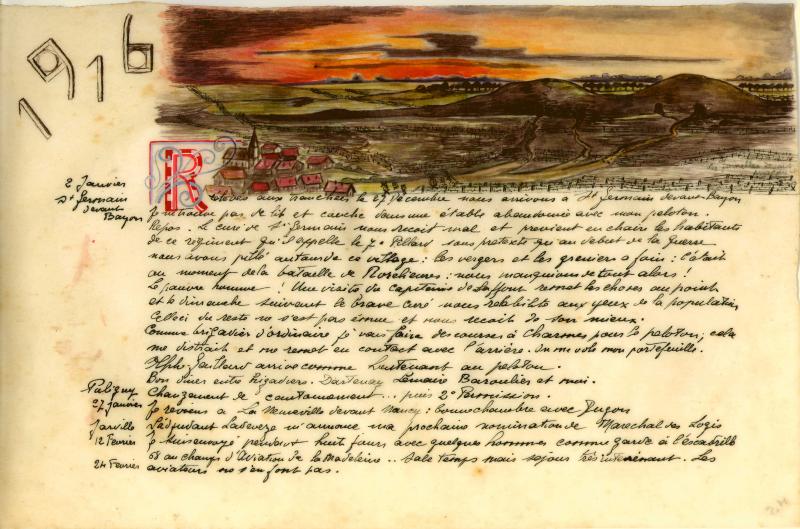 1916
2 Janvier
St Germain
devant
Bayon
Relevés aux tranchées le 27 Décembre nous arrivons a St Germain devant Bayon
Je ne trouve pas de lit et couche dans une étable abandonnée avec mon peloton.
Repos. Le curé de St Germain nous recoit mal et previent en chaire les habitants
de ce regiment qu'il appelle le 7e Pillard sous pretexte qu'au debut de la Guerre
nous avons pillé autour de ce village: les vergers et les greniers a foin: c'était
au moment de la bataille de : nous manquions de tout alors!
Le pauvre homme! Une visite du capitaine de remet les choses au point
et le dimanche suivant le brave curé nous rehabilite aux yeux de la population
Celle ci du reste ne s'est pas émue et nous recoit de son mieux.
Comme brigadier d'ordinaire je vais faire des courses à Charmes pour le peloton, cela
me distrait et me remet en contact avec l'arrière. On me vole mon portefeuille.
arrive comme Lieutenant au peloton.
Bon diner entre Brigadiers. Lemaire et moi.
Pulligny
Changement de cantonnement... puis 2e Permission.
27 Janvier
Je reviens a La Neuveville devant Nancy: bonne chambre avec
Jarville
L'adjudant m'annonce ma prochaine nomination de Marechal des Logis
12 Fevrier
Je suis envoyé pendant huit jours avec quelques hommes comme garde à l'escadrille
68 au champ d'Aviation de la Madeleine.. Sale temps mais sejour très interessant. Les
24 Fevrier
aviateurs ne s'en font pas.